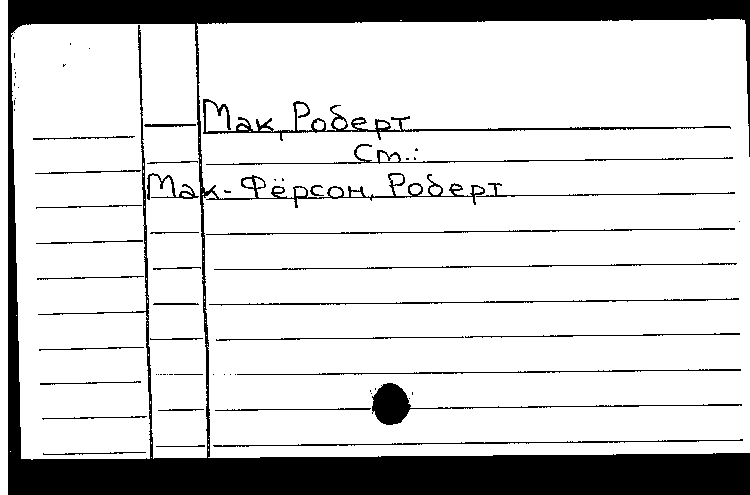 Мак, Роберт
Cm.:
Мак-Фёрсон, Роберт